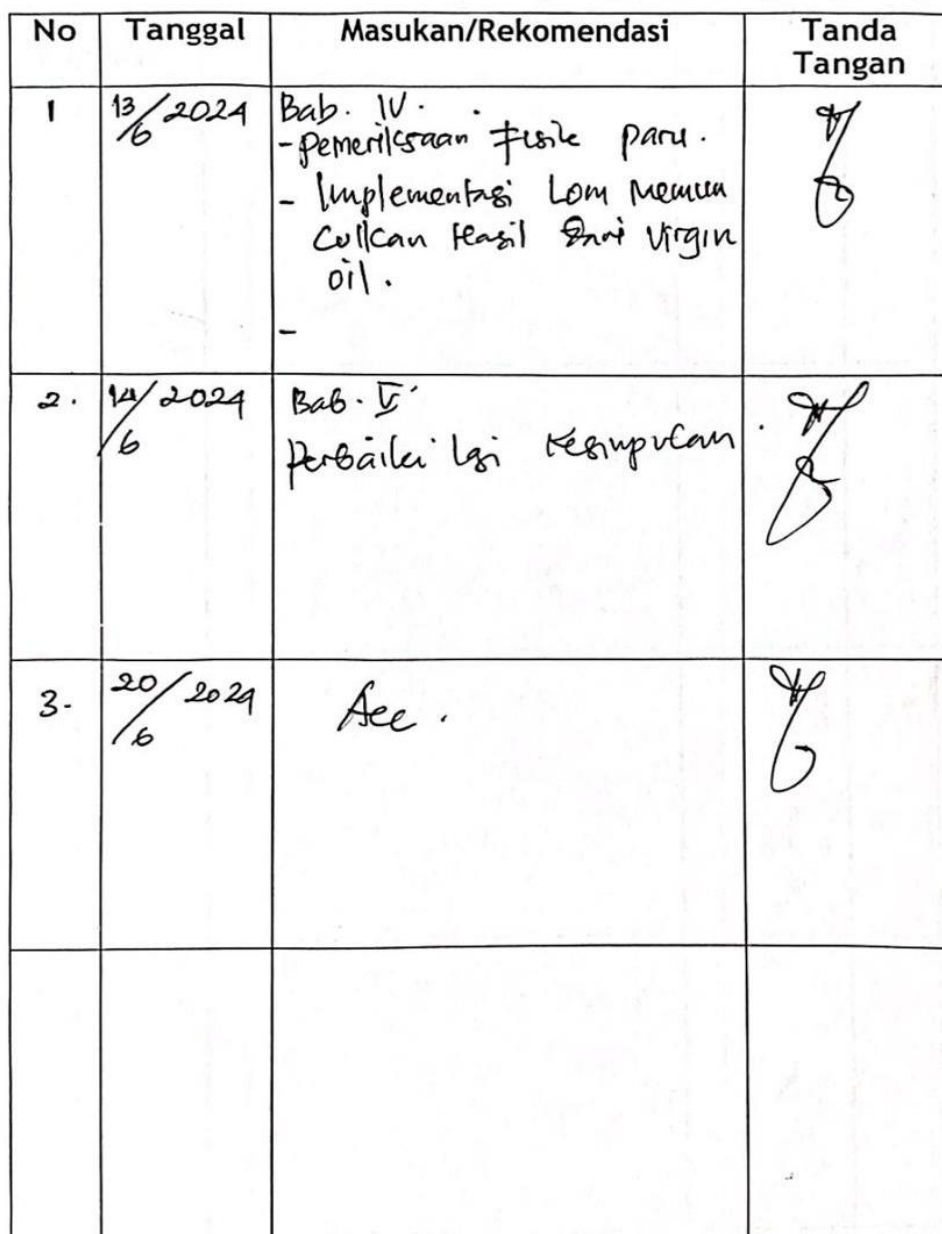 No Tanggal Masukan/Rekomendasi Tanda Tangan
1 13/6 2024 Bab. IV.
- Pemeriksaan Fisik paru.
- Implementasi Lom Memun
culkan Hasil dari Virgin
oil.
-
2. 14/6 2024 Bab. V
Perbaiki lgi Kesimpulan.
3. 20/6 2024 Acc.